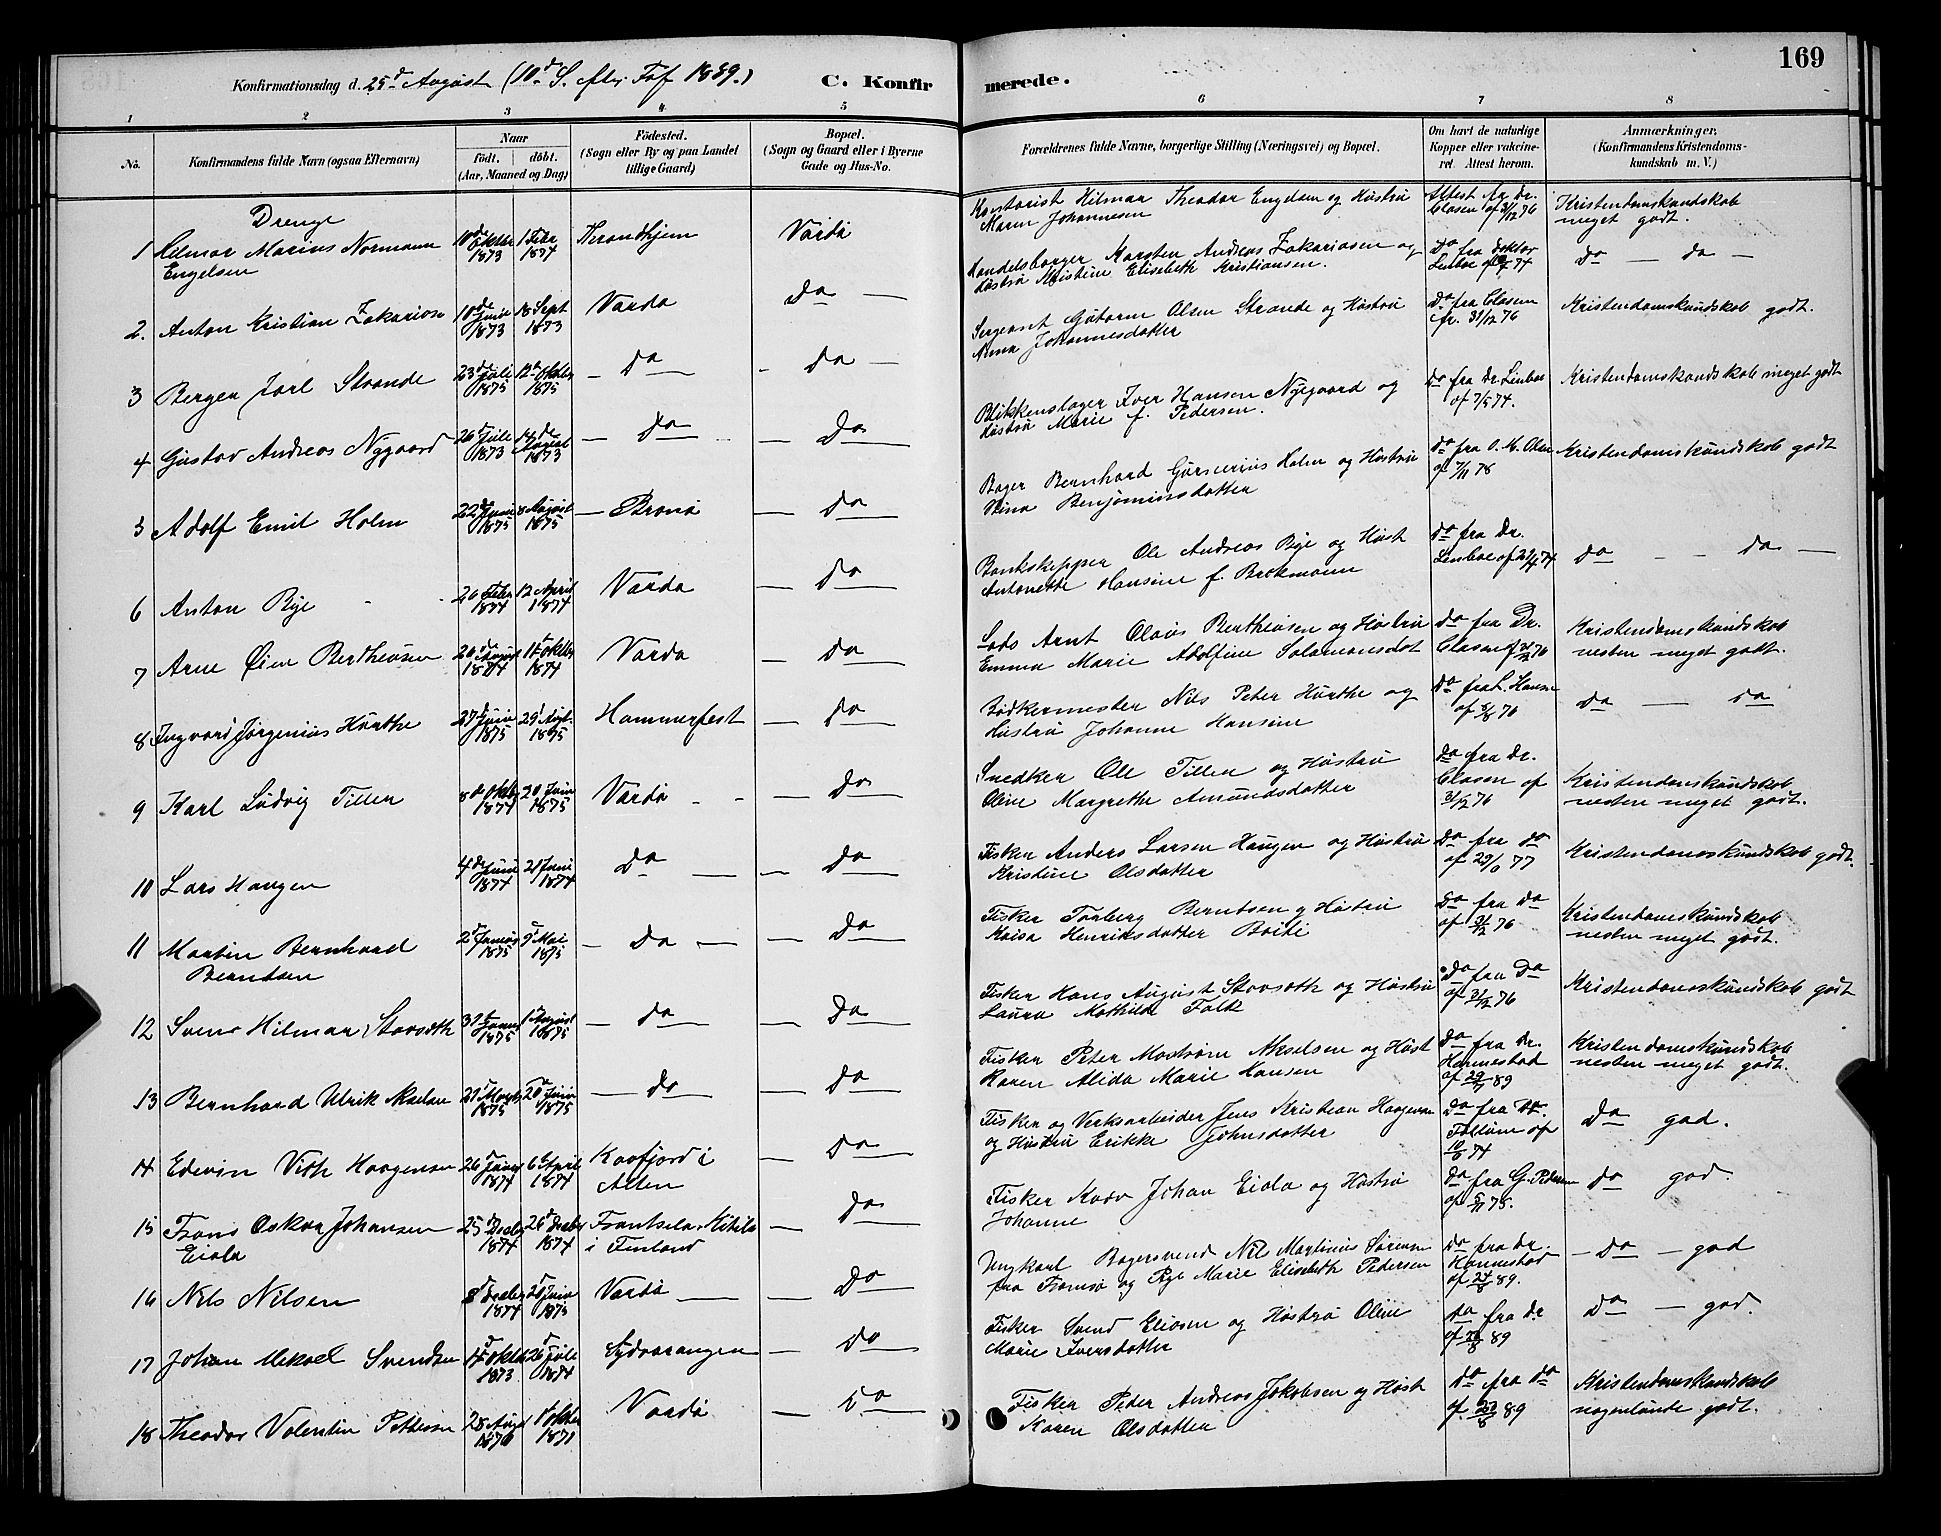 169
Konfirmationsdag d. 25d August (10d S. eftr. Tref 1889.)
C. Konfirmerede.
1 2 3 4 5 6 7 8
No.
Konfirmandens fulde Navn (ogsaa Efternavn)
Naar
födt. döbt.
(Aar, Maaned og Dag)
Födested.
(Sogn eller By og paa Landet
tillige Gaard)
Bopæl.
(Sogn og Gaard eller i Byerne
Gade og Hus-No.
Forældrenes fulde Navne, borgerlige Stilling (Næringsvei) og Bopæl.
Om havt de naturlige
Kopper eller vakcine-
ret. Attest herom.
Anmærkninger,
(Konfirmandens Kristendoms-
kundskab m. V.)
Drenge
1 Hilmar Marius Normann Engelsen 10de Oktbr 1873 1 Febr 1874 Throndhjem Vardø
Kontorist Hilmar Theodor Engelsen og Hustru
Maren Johannesen
Attest fr. Dr. Clasen af 31/12 76
Kristendomskundskab
meget godt.
2. Anton Kristian Zakariasen 10de Juni 1873 18 Sept 1873 Vardø Do
Handelsborger Karsten Andreas Zakariasen og
Hustru Kristine Elisebeth Kristiansen.
Do fra Doktor Lenboe 74
Do — do —
3 Bergen Jarl Strande 23de Juli 1875 12te Oktbr 1875 Do Do
Sergeant Guttorm Olsen Strande og Hustru
Anna Johannesdatter
Do fra Clasen fr. 31/12 76
Kristendomskundskab godt.
4 Gustav Andreas Nygaard 26d Juli 1873 14de August 1873 Do Do
Blikkenslager Iver Hansen Nygaard og
Hustru Marie f. Pedersen.
Do fra Dr. Linboe af 7/5 74.
Kristendomskundskab meget godt
5 Adolf Emil Holm 22de Juni 1875 8 August 1875 Brønø Do
Bager Bernhard Holm og Hustru
Stina Benjaminsdatter
Do fra O. M. Olsen af 7/11 78
Kristendomskundskab godt
6 Anton Rye 20 Febr 1874 12 April 1874 Vardø Do
Bankskipper Ole Andreas Rye og Hust
Antonette Hansine f. Brekmann
Do fra Dr. Linboe af 29/4 74
Do — — do —
7 Arne Øien Bertheusen 20de August 1874 11t Oktbr 1874 Vardø Do
Lods Arnt Olaus Bertheusen og Hustru
Emma Marie Adolfine Salamonsdot
Do fra Dr. Clasen af 31/12 76
Kristendomskundskab
nesten meget godt.
8 Ingvard Jørgenius Hurthe 27d Juni 1875 29d Augt. 1875 Hammerfest Do
Bødkermester Nils Peter Hurthe og
Hustru Johanne Hansine
Do fra L. Hansen af 5/8 76
Do — Do
9 Karl Ludvig Tiller 8de Oktbr 1874 20 Juni 1875 Vardø Do
Snedker Ole Tiller og Hustru
Oline Margrethe Amundsdatter
Do fra Dr. Clasen af 31/12 76
Kristendomskundskab
nesten meget godt.
10 Lars Haugen 4de Juni 1874 21 Juni 1874 Do Do
Fisker Anders Larsen Haugen og Hustru
Kristine Olsdatter
Do fra Do af 77
Kristendomskundskab godt.
11 Martin Bernhard Berntsen 2d Januar 1875 9d Mai 1875 Do Do
Fisker Torberg Berntsen og Hustru
Kaisa Henriksdatter
Do fra Do af 31/12 76
Kristendomskundskab
nesten meget godt.
12 Svend Hilmar Storseth 31te Januar 1875 1 August 1875 Do Do
Fisker Hans August Storseth og Hustru
Laura Mathilde Falk
Do fra Do af 31/12 76
Kristendomskundskab godt
13 Bernhard Ulrik Akselsen 21d Marts 1875 20d Juni 1875 Do Do
Fisker Peter Mostrøm Akselsen og Hust
Karen Alida Marie Hansen
Do fra Dr. Hannestad af 89
Kristendomskundskab
nesten meget godt.
14 Edevin Vith Haagensen 26d Januar 1874 6te April 1874 Kaafjord i Alten Do
Fisker og Verksarbeider Jens Kristian Haagensen
og Hustru Erikke Johnsdatter
Do fra Dr. Follum af 74
Do god.
15 Frans Oskar Johansen Eiala 25d Decbr 1874 26d Decbr 1874 Frantsila, Kittila i Finland Do
Fisker Karv Johan Eiala og Hustru
Johanne
Do fra G. Pedersen af 75.
Do god.
16 Nils Nilsen 8d Decbr 1874 20d Juni 1875 Vardø Do
Ungkarl Bagersvend Nils Martinius Sørensen
fra Tromsø og Pige Marie Elisebeth Pedersen
Do fra Dr. Hannestad af 24/8 89.
Do — god
17 Johan Mikael Svendsen 15d Oktbr 1873 26d Juli 1874 Sydvaranger Do
Fisker Svend Eliasen og Hustru Oline
Marie Iversdatter
Do fra Dr. af 89
Do — god.
18 Theodor Valentin Pettersen 28 Augt 1870 1d Oktbr 1871 Vardø Do
Fisker Peder Andreas Jakobsen og Hust
Karen Olsdatter
Do fra Do af 89
Kristendomskundskab
nogenlunde godt.